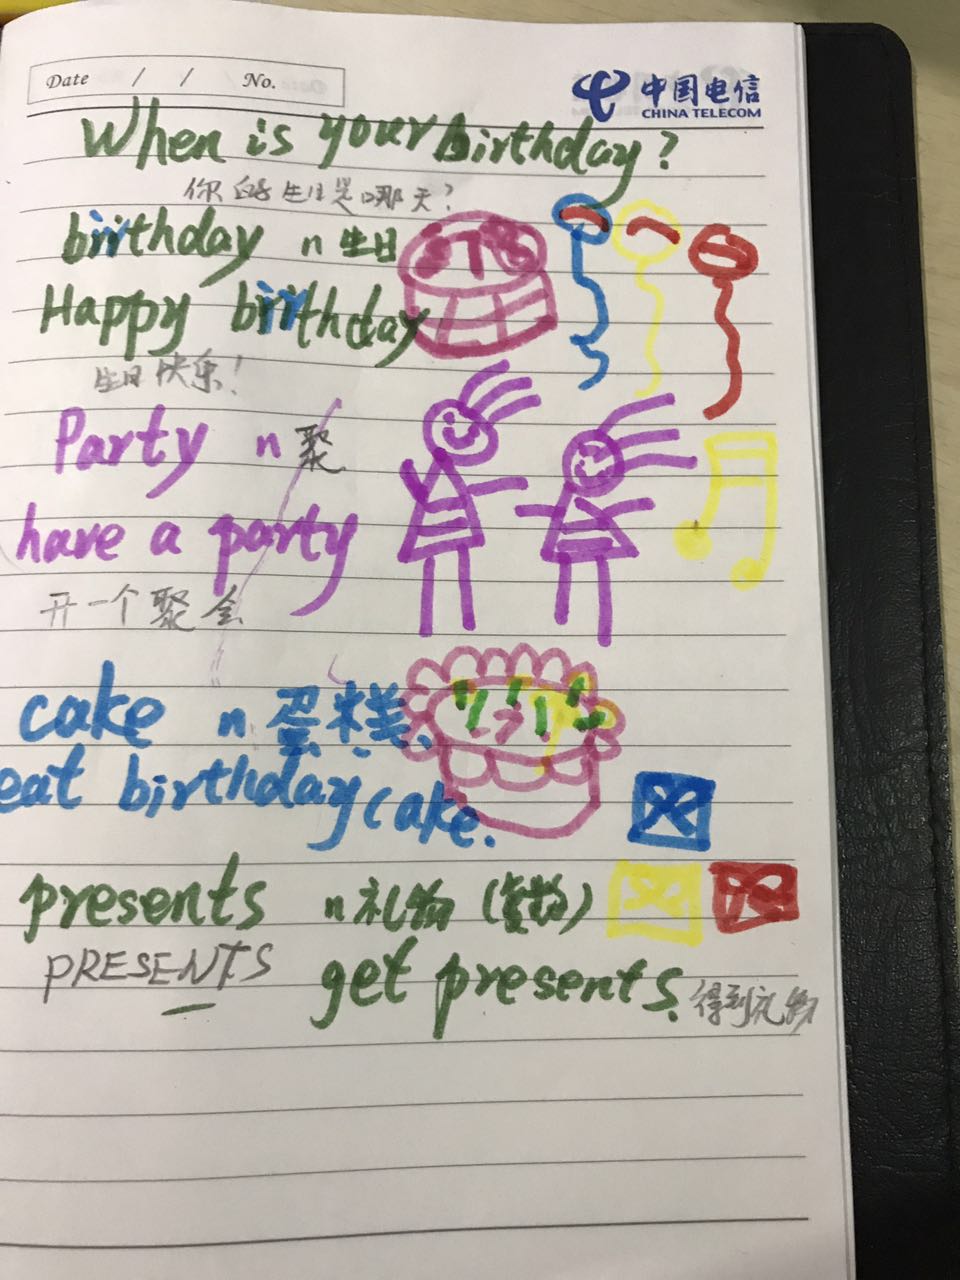 Date / / No.
中国电信
CHINA TELECOM
When is your birthday?
你的生日是哪天?
birthday n 生日
Happy birthday
生日快乐!
Party n 聚
have a party
开一个聚会
cake n 蛋糕
eat birthday cake.
presents n 礼物 (复数)
PRESENTS get presents. 得到礼物